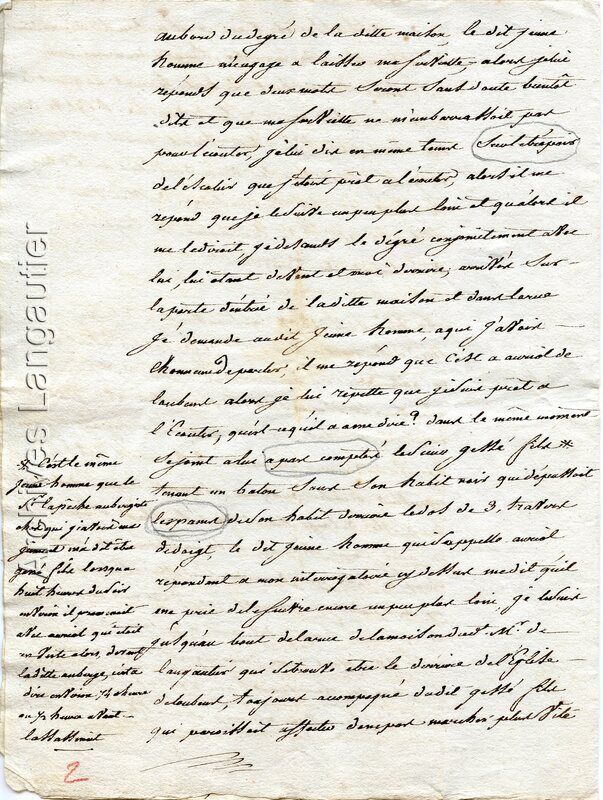 au bord du degré de la ditte maison le dit jeune
homme m'engage a laisser ma serviette, alors je lui
reponds que deux mots seront sans doute bientôt
dits et que ma serviette ne m'embarrassoit pas
pour l'ecouter, je lui dis en même tems sur le
de l'escalier que j'etois prêt a l'ecouter, alors il me
repond que je le suive un peu plus loin et qu'alors il
me le diroit, je descends le dégré conjointement avec
lui, lui etant devent et moi derriere, arrivés sur
la porte d'entrée de la ditte maison et dans la rue
je demande au dit jeune homme a qui j'avois
l'honneur de parler, il me repond que c'est a auriol de
loubens alors je lui repette que je suis prêt a
l'Ecouter, qu'est ce qu'il a a me dire? dans le même moment
se joint a lui a pas comptés le sieur gessé fils *
tenant un baton sous son habit noir qui depassoit
les pans de son habit derriere le dos de 3 travers
de doigt, le dit jeune homme qui s'appelle auriol
repondant a mon interrogatoire cy dessus me dit qu'il
me prie de le suivre encore un peu plus loin, je le suis
jusqu'au bout de la rue de la maison de M.r de
Langautier qui se trouve etre le derriere de l'Eglise
de loubens, toujours acompagné du dit gessé fils
qui paroissoit affecter de ne pas marcher plus vite
* C'est le même
jeune homme que le
S.r Lapeche aubergiste
chez qui j'avois ma
jument m'a dit etre
gessé fils lorsque
huit heures du soir
environ il promenoit
avec auriol qui etoit
en veste alors, devant
la ditte auberge, c'est a
dire environ 1/4 d'heure
ou 1/2 heure avant
l'assassinat
2
Archives Langautier